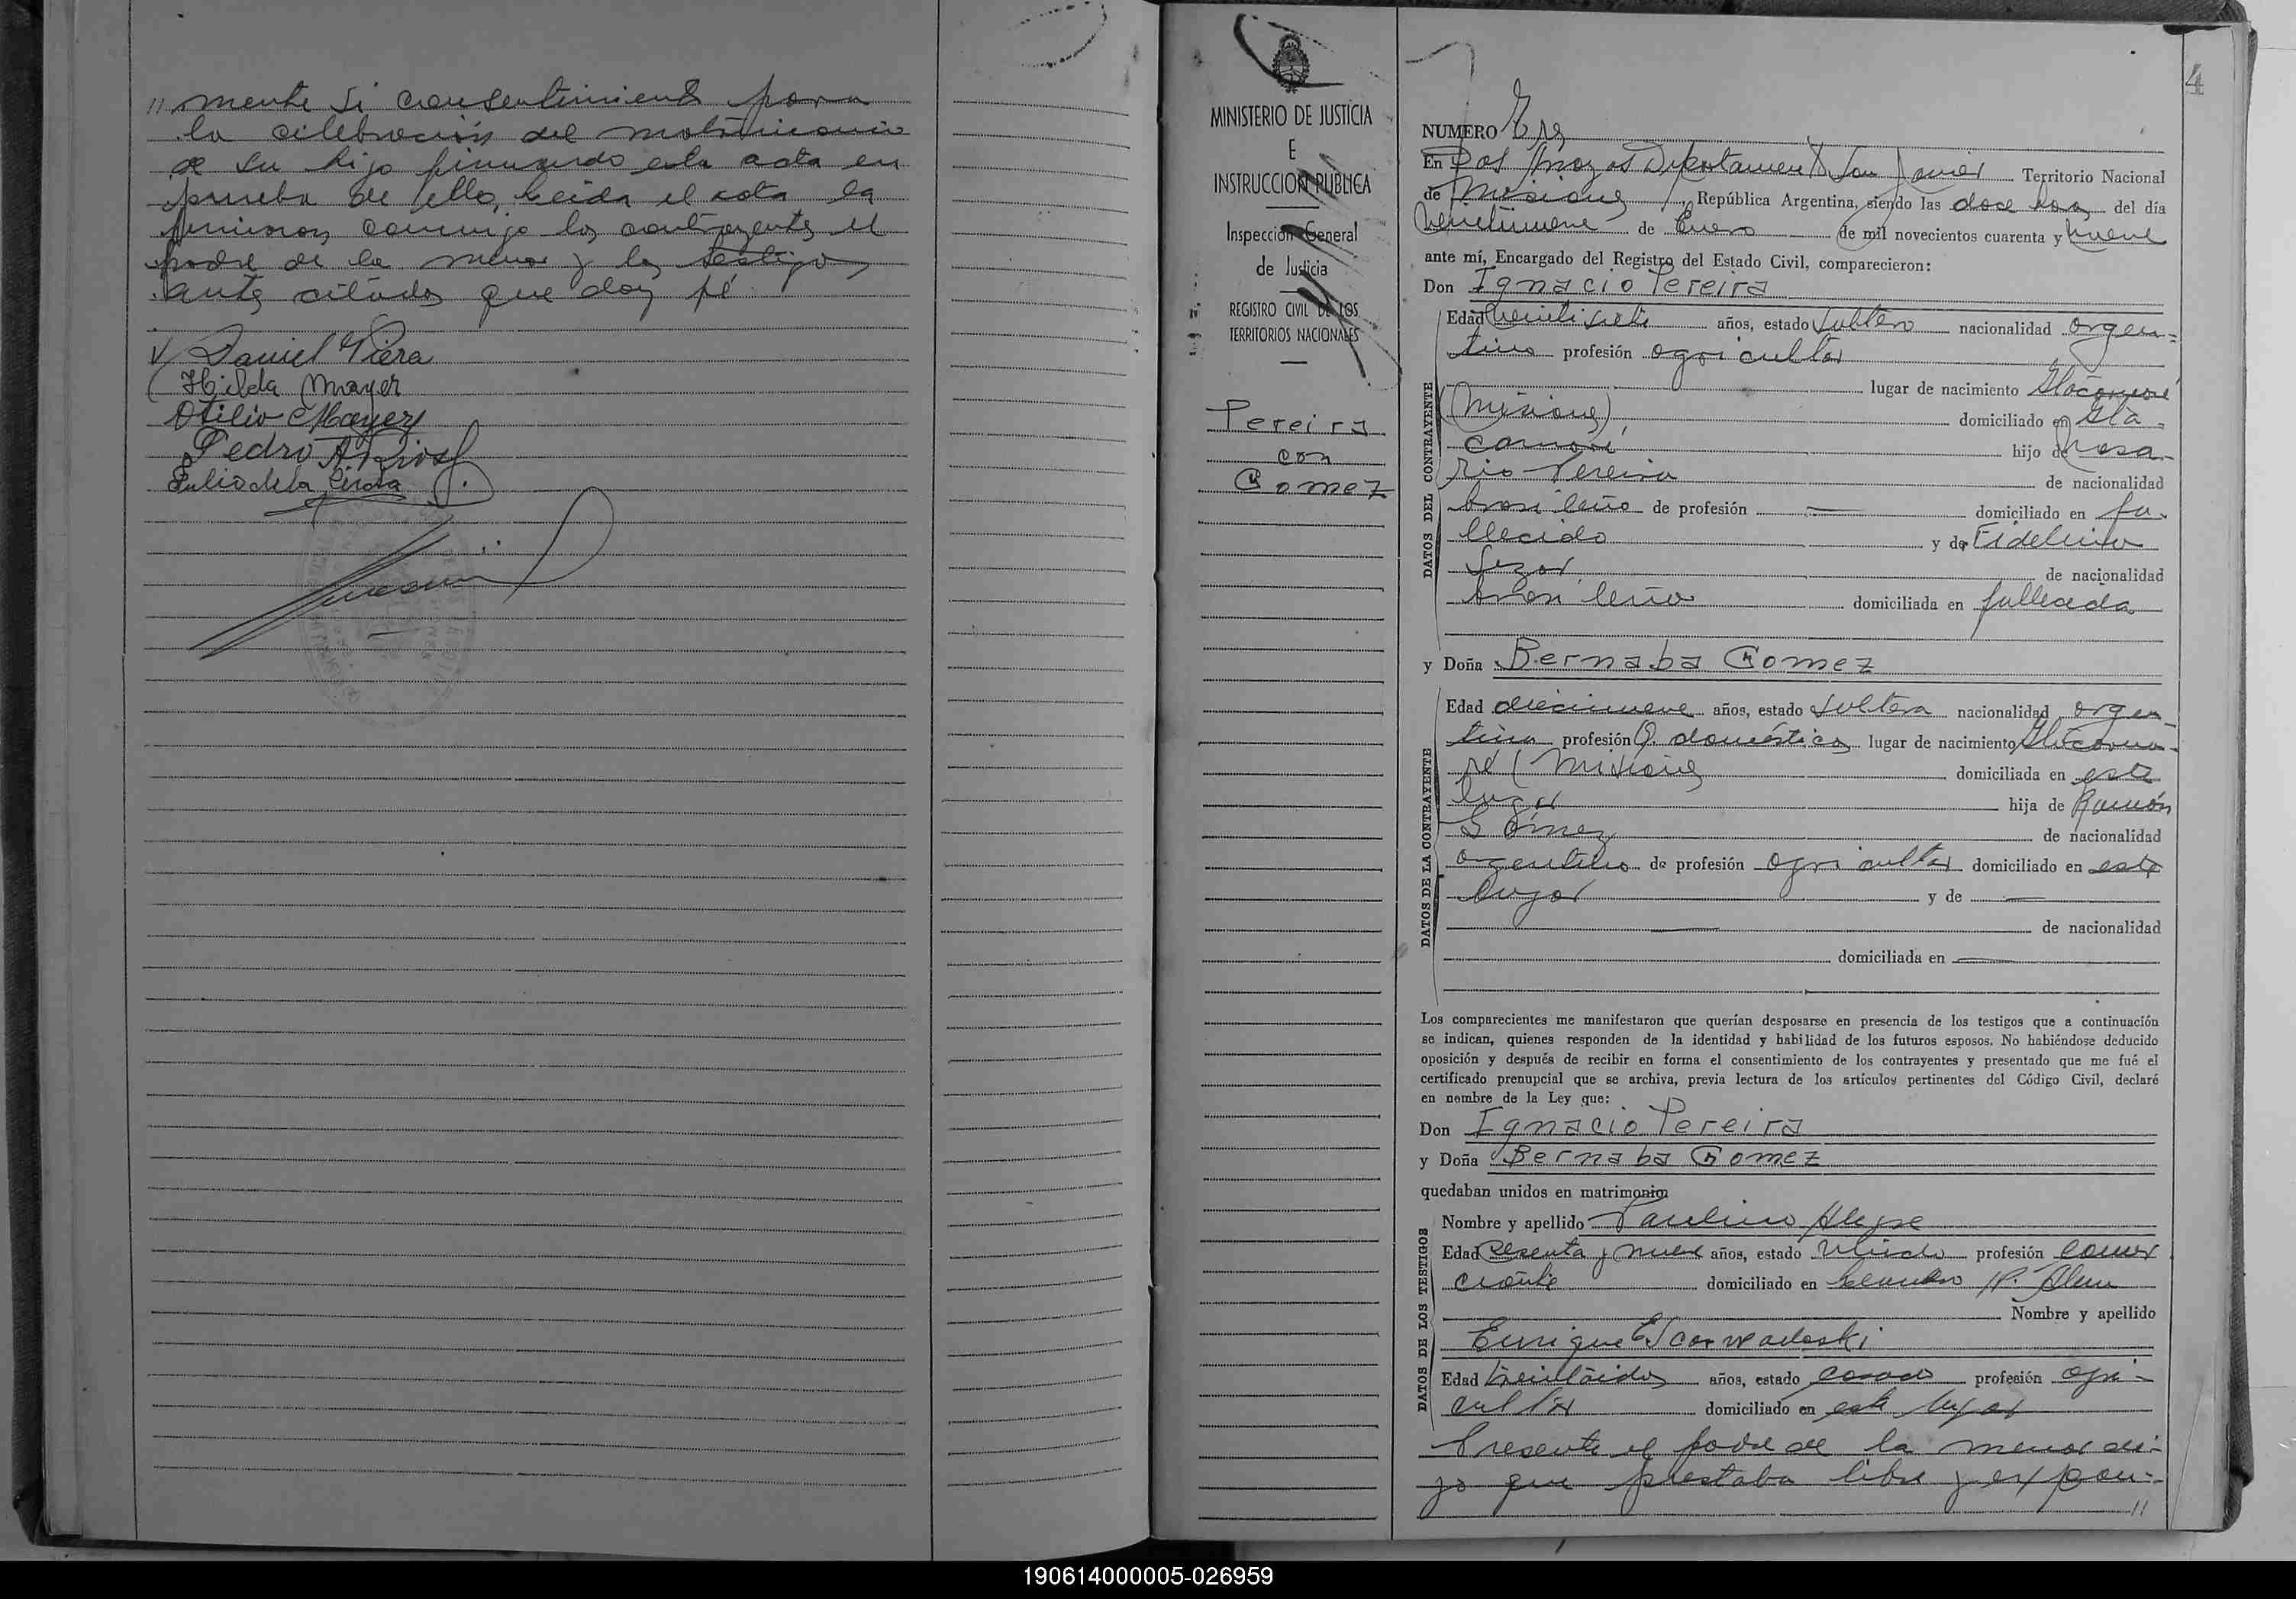 // mente su consentimiento para
la celebración del matrimonio
de su hija firmando esta acta en
prueba de ello, leida el acta la
firmaron conmigo los contrayentes el
padre de la menor y los testigos
antes citados que doy fé
Daniel Piera
Hilda Mayer
Otilio Mayer
Pedro A Rios
Julio de la
MINISTERIO DE JUSTICIA
E
INSTRUCCION PUBLICA
Inspección General
de Justicia
REGISTRO CIVIL DE LOS
TERRITORIOS NACIONALES
Pereira
con
Gomez
4
NUMERO Tres
En Dos Departamento San Javier Territorio Nacional
de Misiones, República Argentina, siendo las doce horas del día
veintinueve de Enero de mil novecientos cuarenta y nueve
ante mí, Encargado del Registro del Estado Civil, comparecieron:
Don Ignacio Pereira
DATOS DEL CONTRAYENTE
Edad veintisiete años, estado soltero nacionalidad argen-
tino profesión agricultor
lugar de nacimiento
(Misiones) domiciliado en
hijo de Rosa-
rio Pereira de nacionalidad
brasileño de profesión — domiciliado en fa-
llecido y de Fidelina
de nacionalidad
brasileña domiciliada en fallecida
y Doña Bernaba Gomez
DATOS DE LA CONTRAYENTE
Edad diecinueve años, estado soltera nacionalidad argen-
tina profesión Q. domésticos lugar de nacimiento
ré (Misiones domiciliada en este
lugar hija de Ramón
Gómez de nacionalidad
argentino de profesión agricultor domiciliado en este
lugar y de —
— de nacionalidad
domiciliada en —
Los comparecientes me manifestaron que querían desposarse en presencia de los testigos que a continuación
se indican, quienes responden de la identidad y habilidad de los futuros esposos. No habiéndose deducido
oposición y después de recibir en forma el consentimiento de los contrayentes y presentado que me fué el
certificado prenupcial que se archiva, previa lectura de los artículos pertinentes del Código Civil, declaré
en nombre de la Ley que:
Don Ignacio Pereira
y Doña Bernaba Gomez
quedaban unidos en matrimonio.
DATOS DE LOS TESTIGOS
Nombre y apellido Paulino Alegre
Edad sesenta y nueve años, estado viudo profesión comer
ciante domiciliado en Leandro N. Alem
Nombre y apellido
Enrique
Edad treintaidos años, estado casado profesión agri-
cultor domiciliado en este lugar
Presente el padre de la menor di-
jo que prestaba libre y expon-
//
190614000005-026959